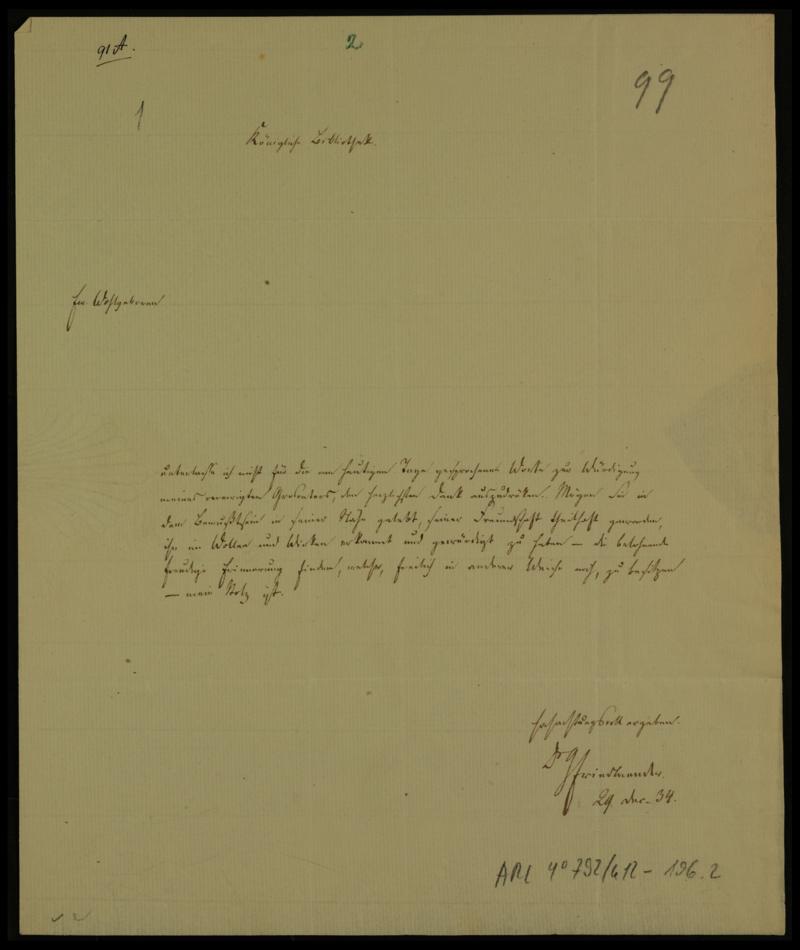 91 A.
2
99
1
Königliche Bibliothek.
Ew. Wohlgeboren
unterlasse ich nicht für die am heutigen Tage gesprochenen Worte zur Würdigung
meines verewigten Grosvaters, den herzlichsten Dank auszudrüken. Mögen Sie in
dem Bewußtsein in seiner Nähe gelebt, seiner Freundschaft theilhaft geworden,
ihn im Wollen und Wirken erkannt und gewürdigt zu haben — die belohnende
freudige Erinnerung finden, welche, freilich in anderer Weise noch, zu besitzen
— mein Stolz ist.
hochachtungsvoll ergeben.
Dr Friedlaender.
29. Dec. 34.
ARC 4° 792/ - 196.2